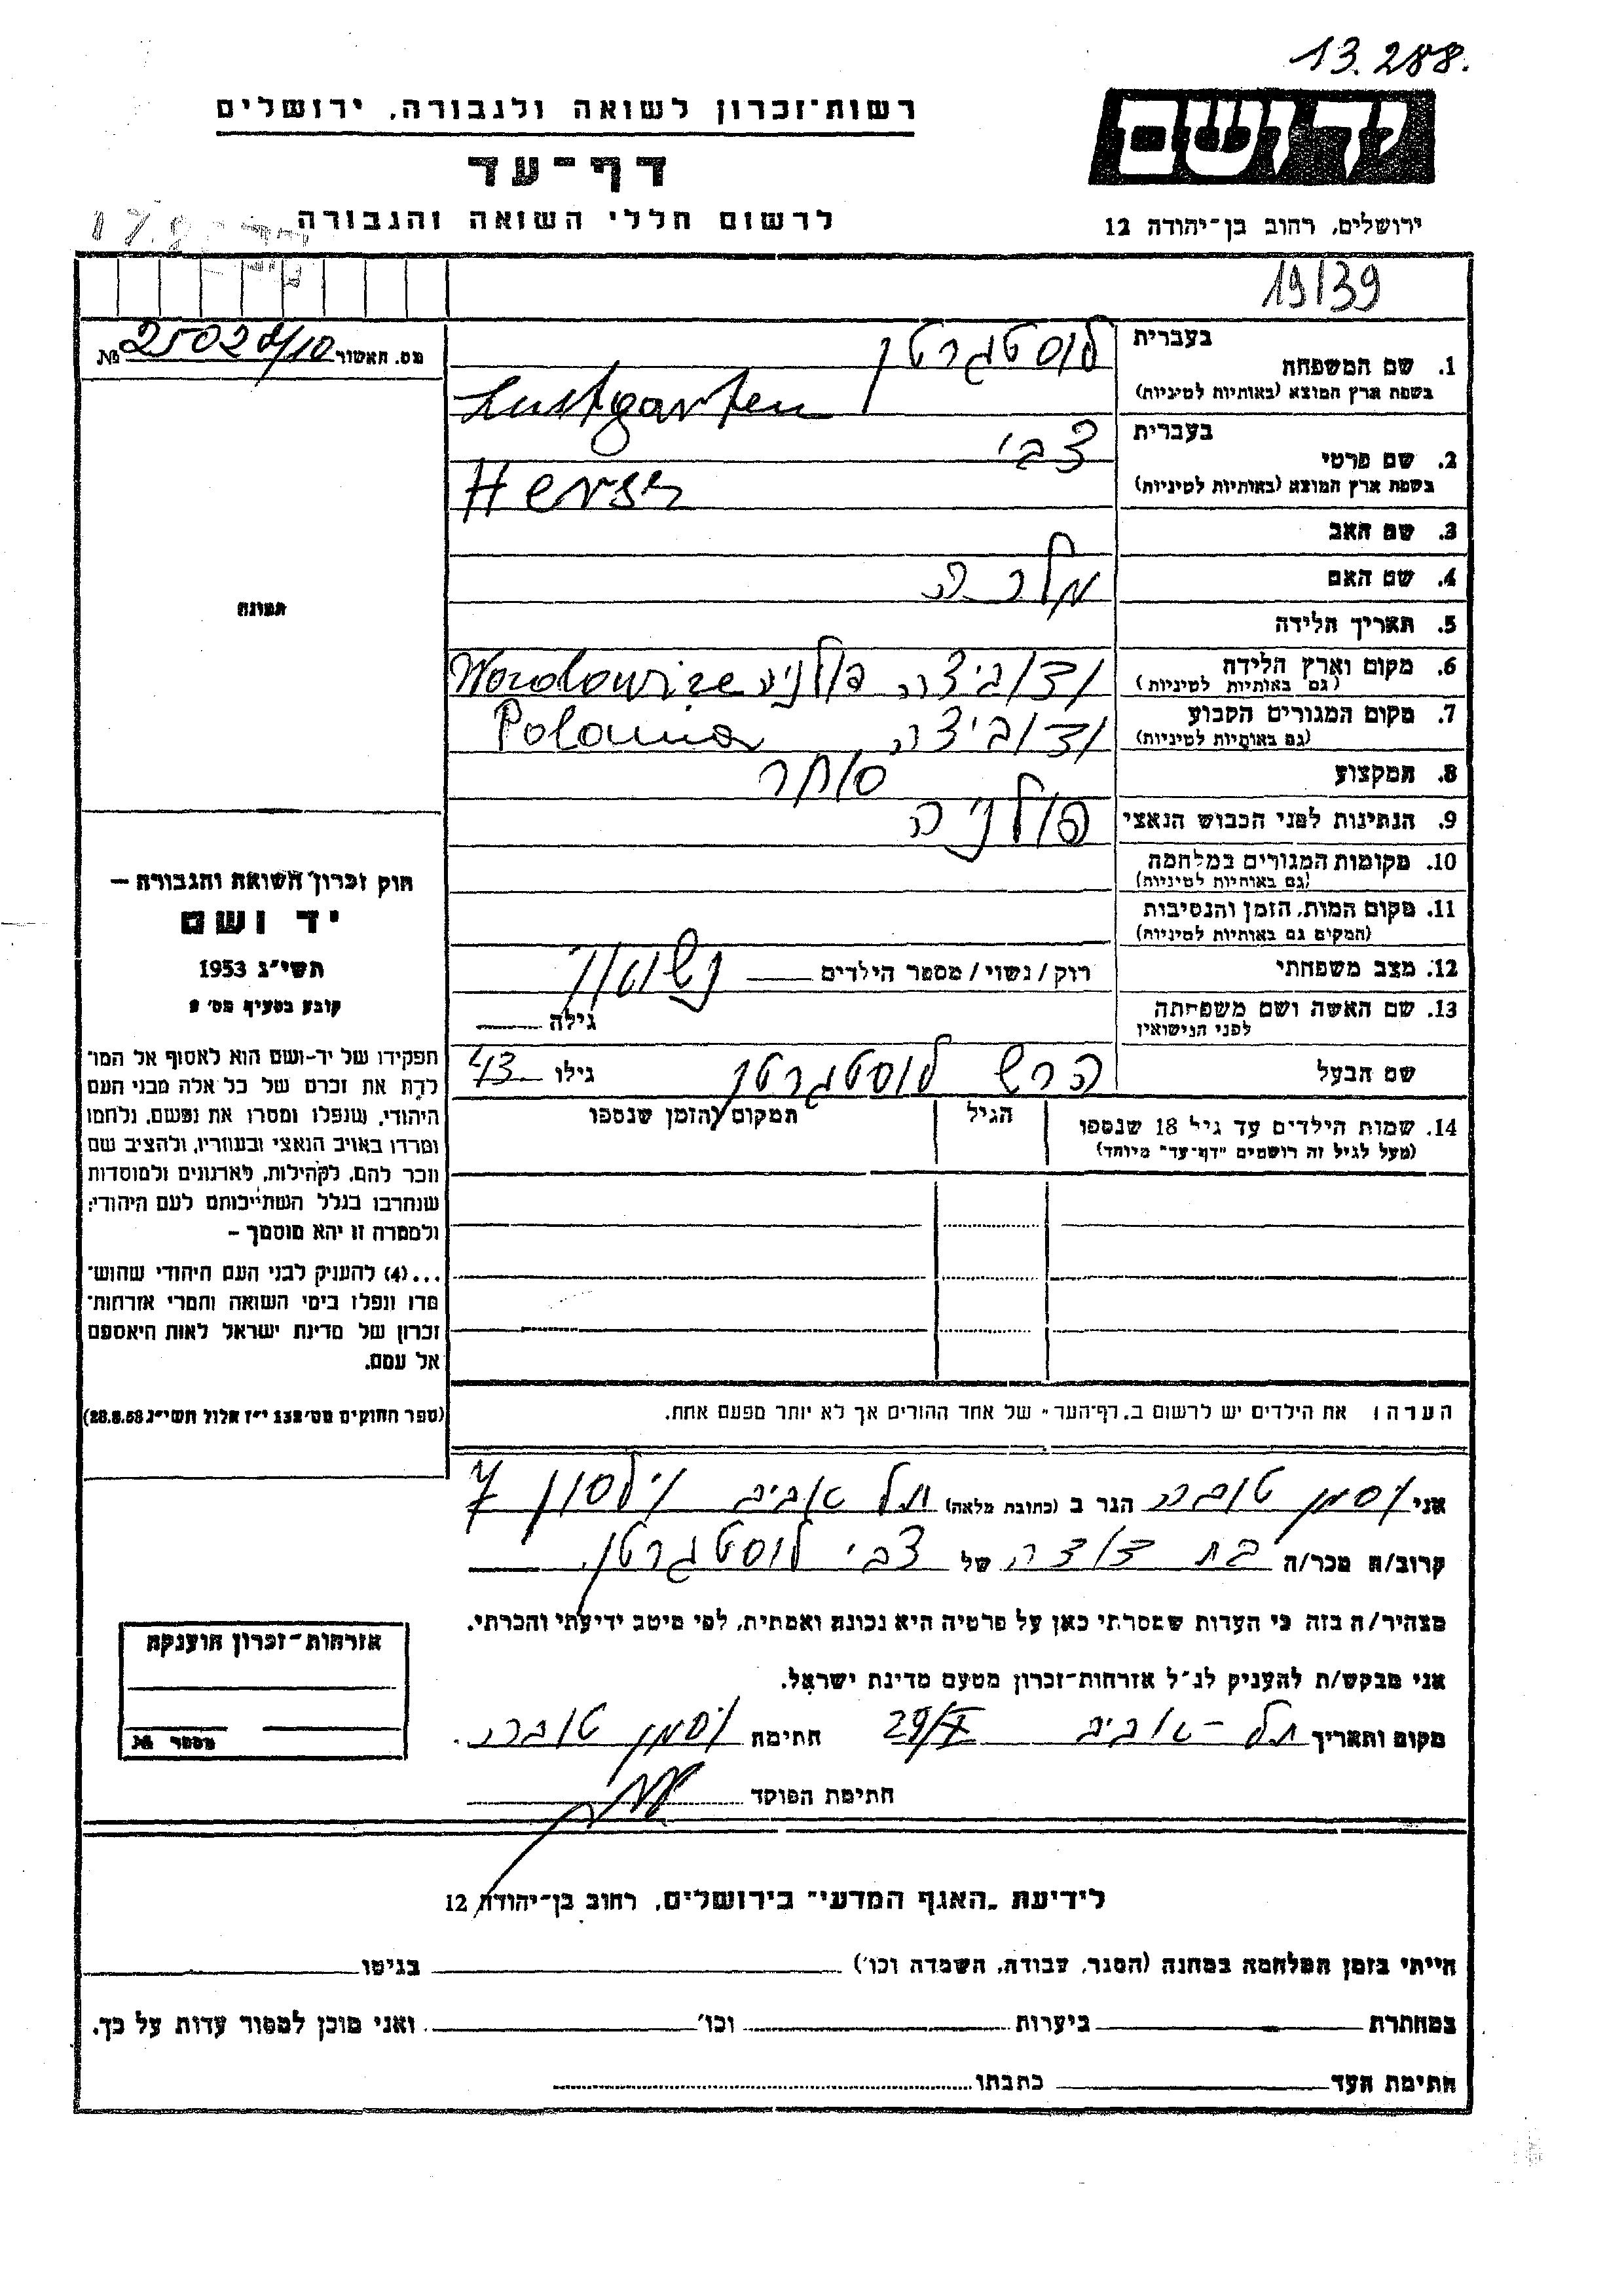 13.288.
יד ושם
רשות־זכרון לשואה ולגבורה, ירושלים
דף־עד
לרשום חללי השואה והגבורה
ירושלים, רחוב בן־יהודה 12
19/39
מס. האשור № 25027/10
1. שם המשפחה בעברית לוסטגרטן
בשפת ארץ המוצא (באותיות לטיניות) Lustgarten
2. שם פרטי בעברית צבי
בשפת ארץ המוצא (באותיות לטיניות) Hersz
3. שם האב
4. שם האם מלכה
5. תאריך הלידה
6. מקום וארץ הלידה (גם באותיות לטיניות) ודוביצה פולניה
7. מקום המגורים הקבוע (גם באותיות לטיניות) ודוביצה Polania
8. המקצוע סוחר
9. הנתינות לפני הכבוש הנאצי פולניה
10. מקומות המגורים במלחמה (גם באותיות לטיניות)
11. מקום המות, הזמן והנסיבות (המקום גם באותיות לטיניות)
12. מצב משפחתי רוק/נשוי/מספר הילדים נשוי
13. שם האשה ושם משפחתה לפני הנישואין גילה
שם הבעל הרש לוסטגרטן גילו 43
14. שמות הילדים עד גיל 18 שנספו הגיל המקום והזמן שנספו
(מעל לגיל זה רושמים "דף־עד" מיוחד)
תמונה
חוק זכרון השואה והגבורה –
יד ושם
תשי"ג 1953
קובע בסעיף מס' 2
תפקידו של יד-ושם הוא לאסוף אל המו־
לדת את זכרם של כל אלה מבני העם
היהודי, שנפלו ומסרו את נפשם, נלחמו
ומרדו באויב הנאצי ובעוזריו, ולהציב שם
וזכר להם, לקהילות, לארגונים ולמוסדות
שנחרבו בגלל השתייכותם לעם היהודי;
ולמטרה זו יהא מוסמך –
...(4) להעניק לבני העם היהודי שהוש־
מדו ונפלו בימי השואה והמרי אזרחות־
זכרון של מדינת ישראל לאות היאספם
אל עמם.
(ספר החוקים מס' 132 י"ז אלול תשי"ג 28.8.53)
הערה: את הילדים יש לרשום ב„דף־העד" של אחד ההורים אך לא יותר מפעם אחת.
אני וסמן טובה הגר ב (כתובת מלאה) תל אביב וילסון 7
קרוב/ה מכר/ה בת דודה של צבי לוסטגרטן
מצהיר/ה בזה כי העדות שמסרתי כאן על פרטיה היא נכונה ואמתית, לפי מיטב ידיעתי והכרתי.
אני מבקש/ת להעניק לנ"ל אזרחות־זכרון מטעם מדינת ישראל.
מקום ותאריך תל-אביב 29/V חתימה וסמן טובה
חתימת הפוקד
אזרחות־זכרון הוענקה
מספר №
לידיעת „האגף המדעי" בירושלים, רחוב בן־יהודה 12
הייתי בזמן המלחמה במחנה (הסגר, עבודה, השמדה וכו') בגיטו
במחתרת ביערות וכו' ואני מוכן למסור עדות על כך.
חתימת העד כתבתו